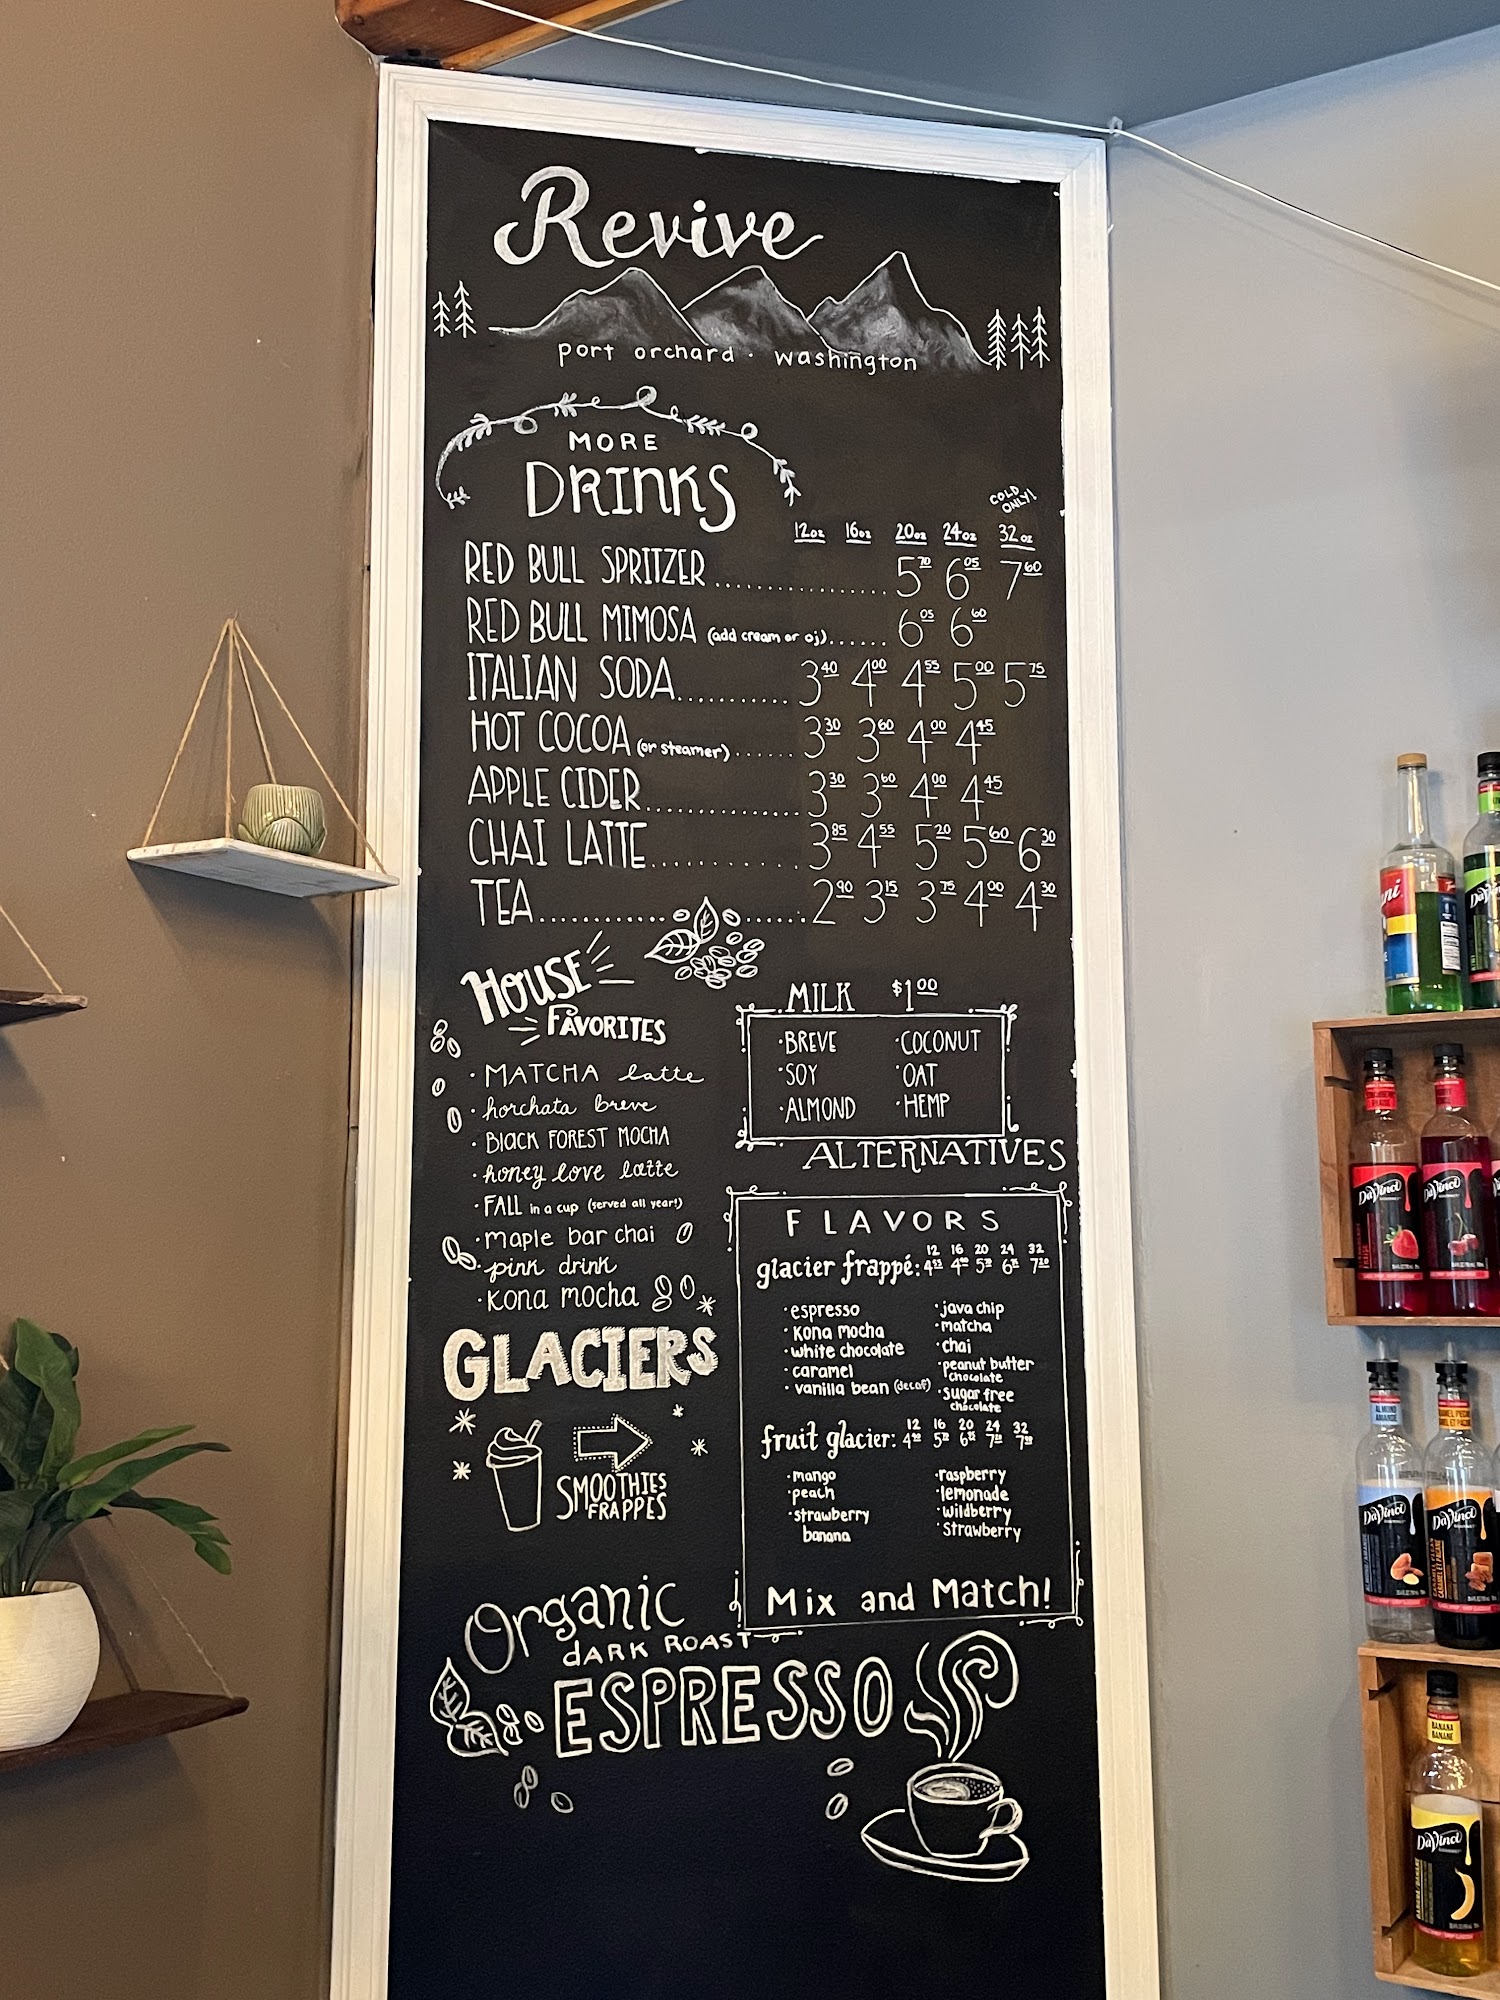 Revive
port orchard · washington
MORE
DRINKS
COLD
ONLY!
12oz 16oz 20oz 24oz 32oz
RED BULL SPRITZER ................. 5.70 6.05 7.60
RED BULL MIMOSA (add cream or oj)...... 6.05 6.60
ITALIAN SODA........... 3.40 4.00 4.55 5.00 5.75
HOT COCOA (or steamer)...... 3.30 3.60 4.00 4.45
APPLE CIDER.............. 3.30 3.60 4.00 4.45
CHAI LATTE........... 3.85 4.55 5.20 5.60 6.30
TEA.................. 2.90 3.15 3.75 4.00 4.30
HOUSE
FAVORITES
· MATCHA latte
· horchata breve
· BLACK FOREST MOCHA
· honey love latte
· FALL in a cup (served all year!)
· maple bar chai
· pink drink
· kona mocha
MILK $1.00
· BREVE · COCONUT
· SOY · OAT
· ALMOND · HEMP
ALTERNATIVES
GLACIERS
SMOOTHIES
FRAPPES
FLAVORS
12 16 20 24 32
glacier frappé:
· espresso · java chip
· kona mocha · matcha
· white chocolate · chai
· caramel · peanut butter
chocolate
· vanilla bean (decaf) · sugar free
chocolate
12 16 20 24 32
fruit glacier:
· mango · raspberry
· peach · lemonade
· strawberry · wildberry
banana · strawberry
Mix and Match!
Organic
dARK ROAST
ESPRESSO
DaVinci
DaVinci
DaVinci
ALMOND
AMANDE
DaVinci
DaVinci
BANANA
BANANE
DaVinci